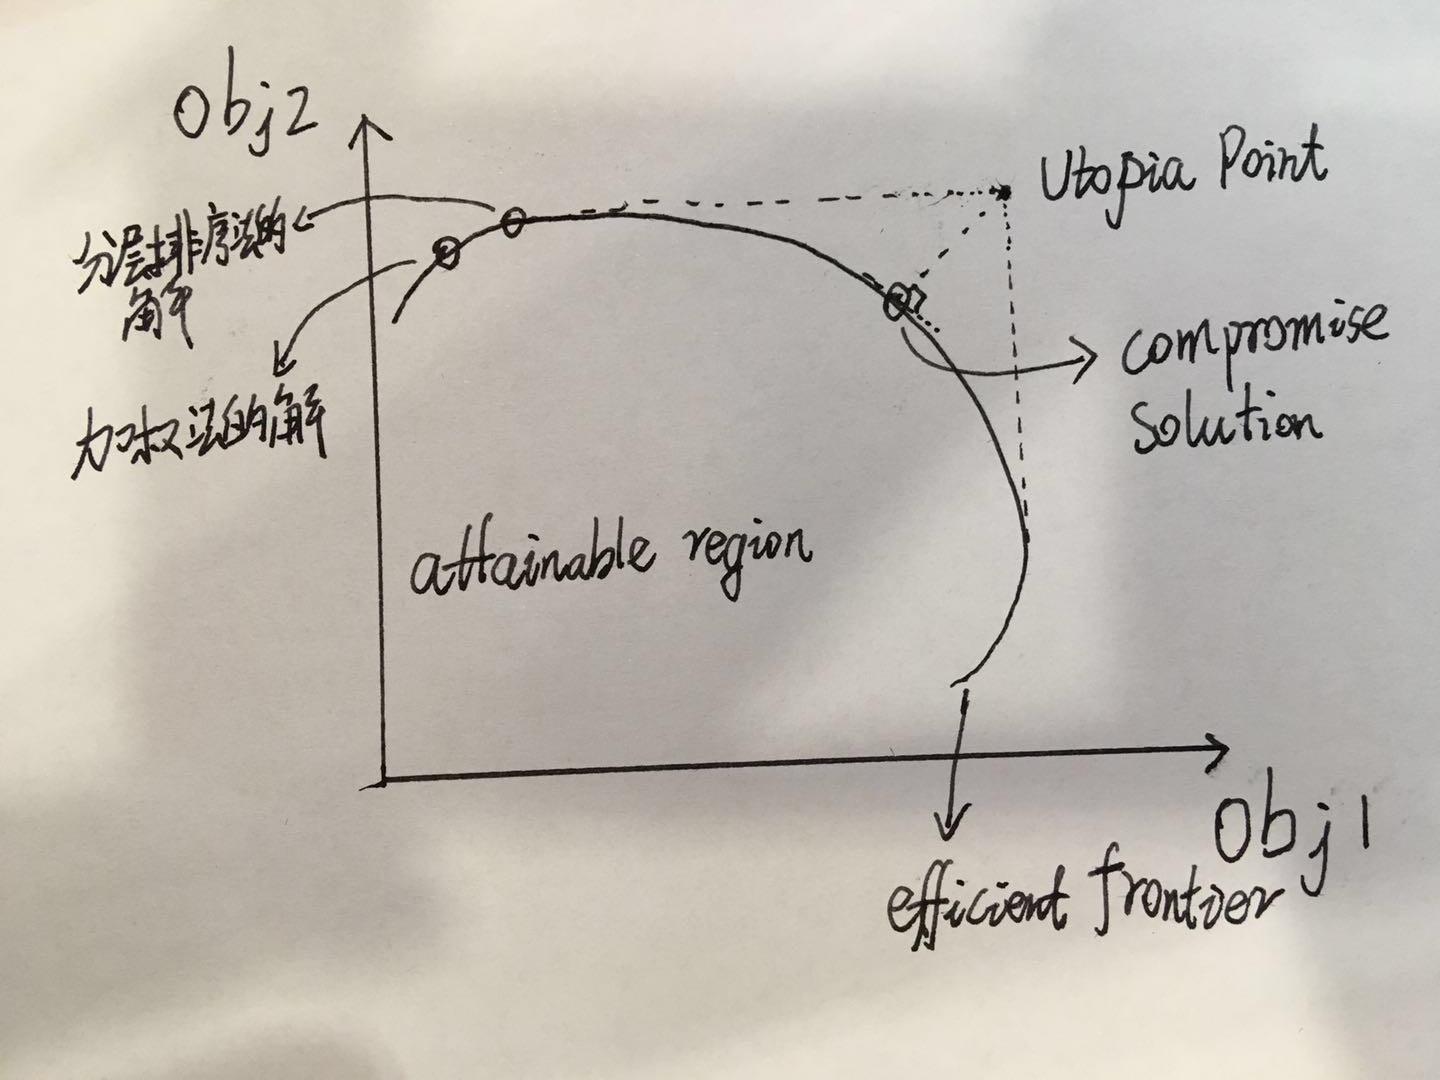 Obj2
Utopia Point
分层排序法的
解
compromise
solution
加权法的解
attainable region
Obj1
efficient frontier